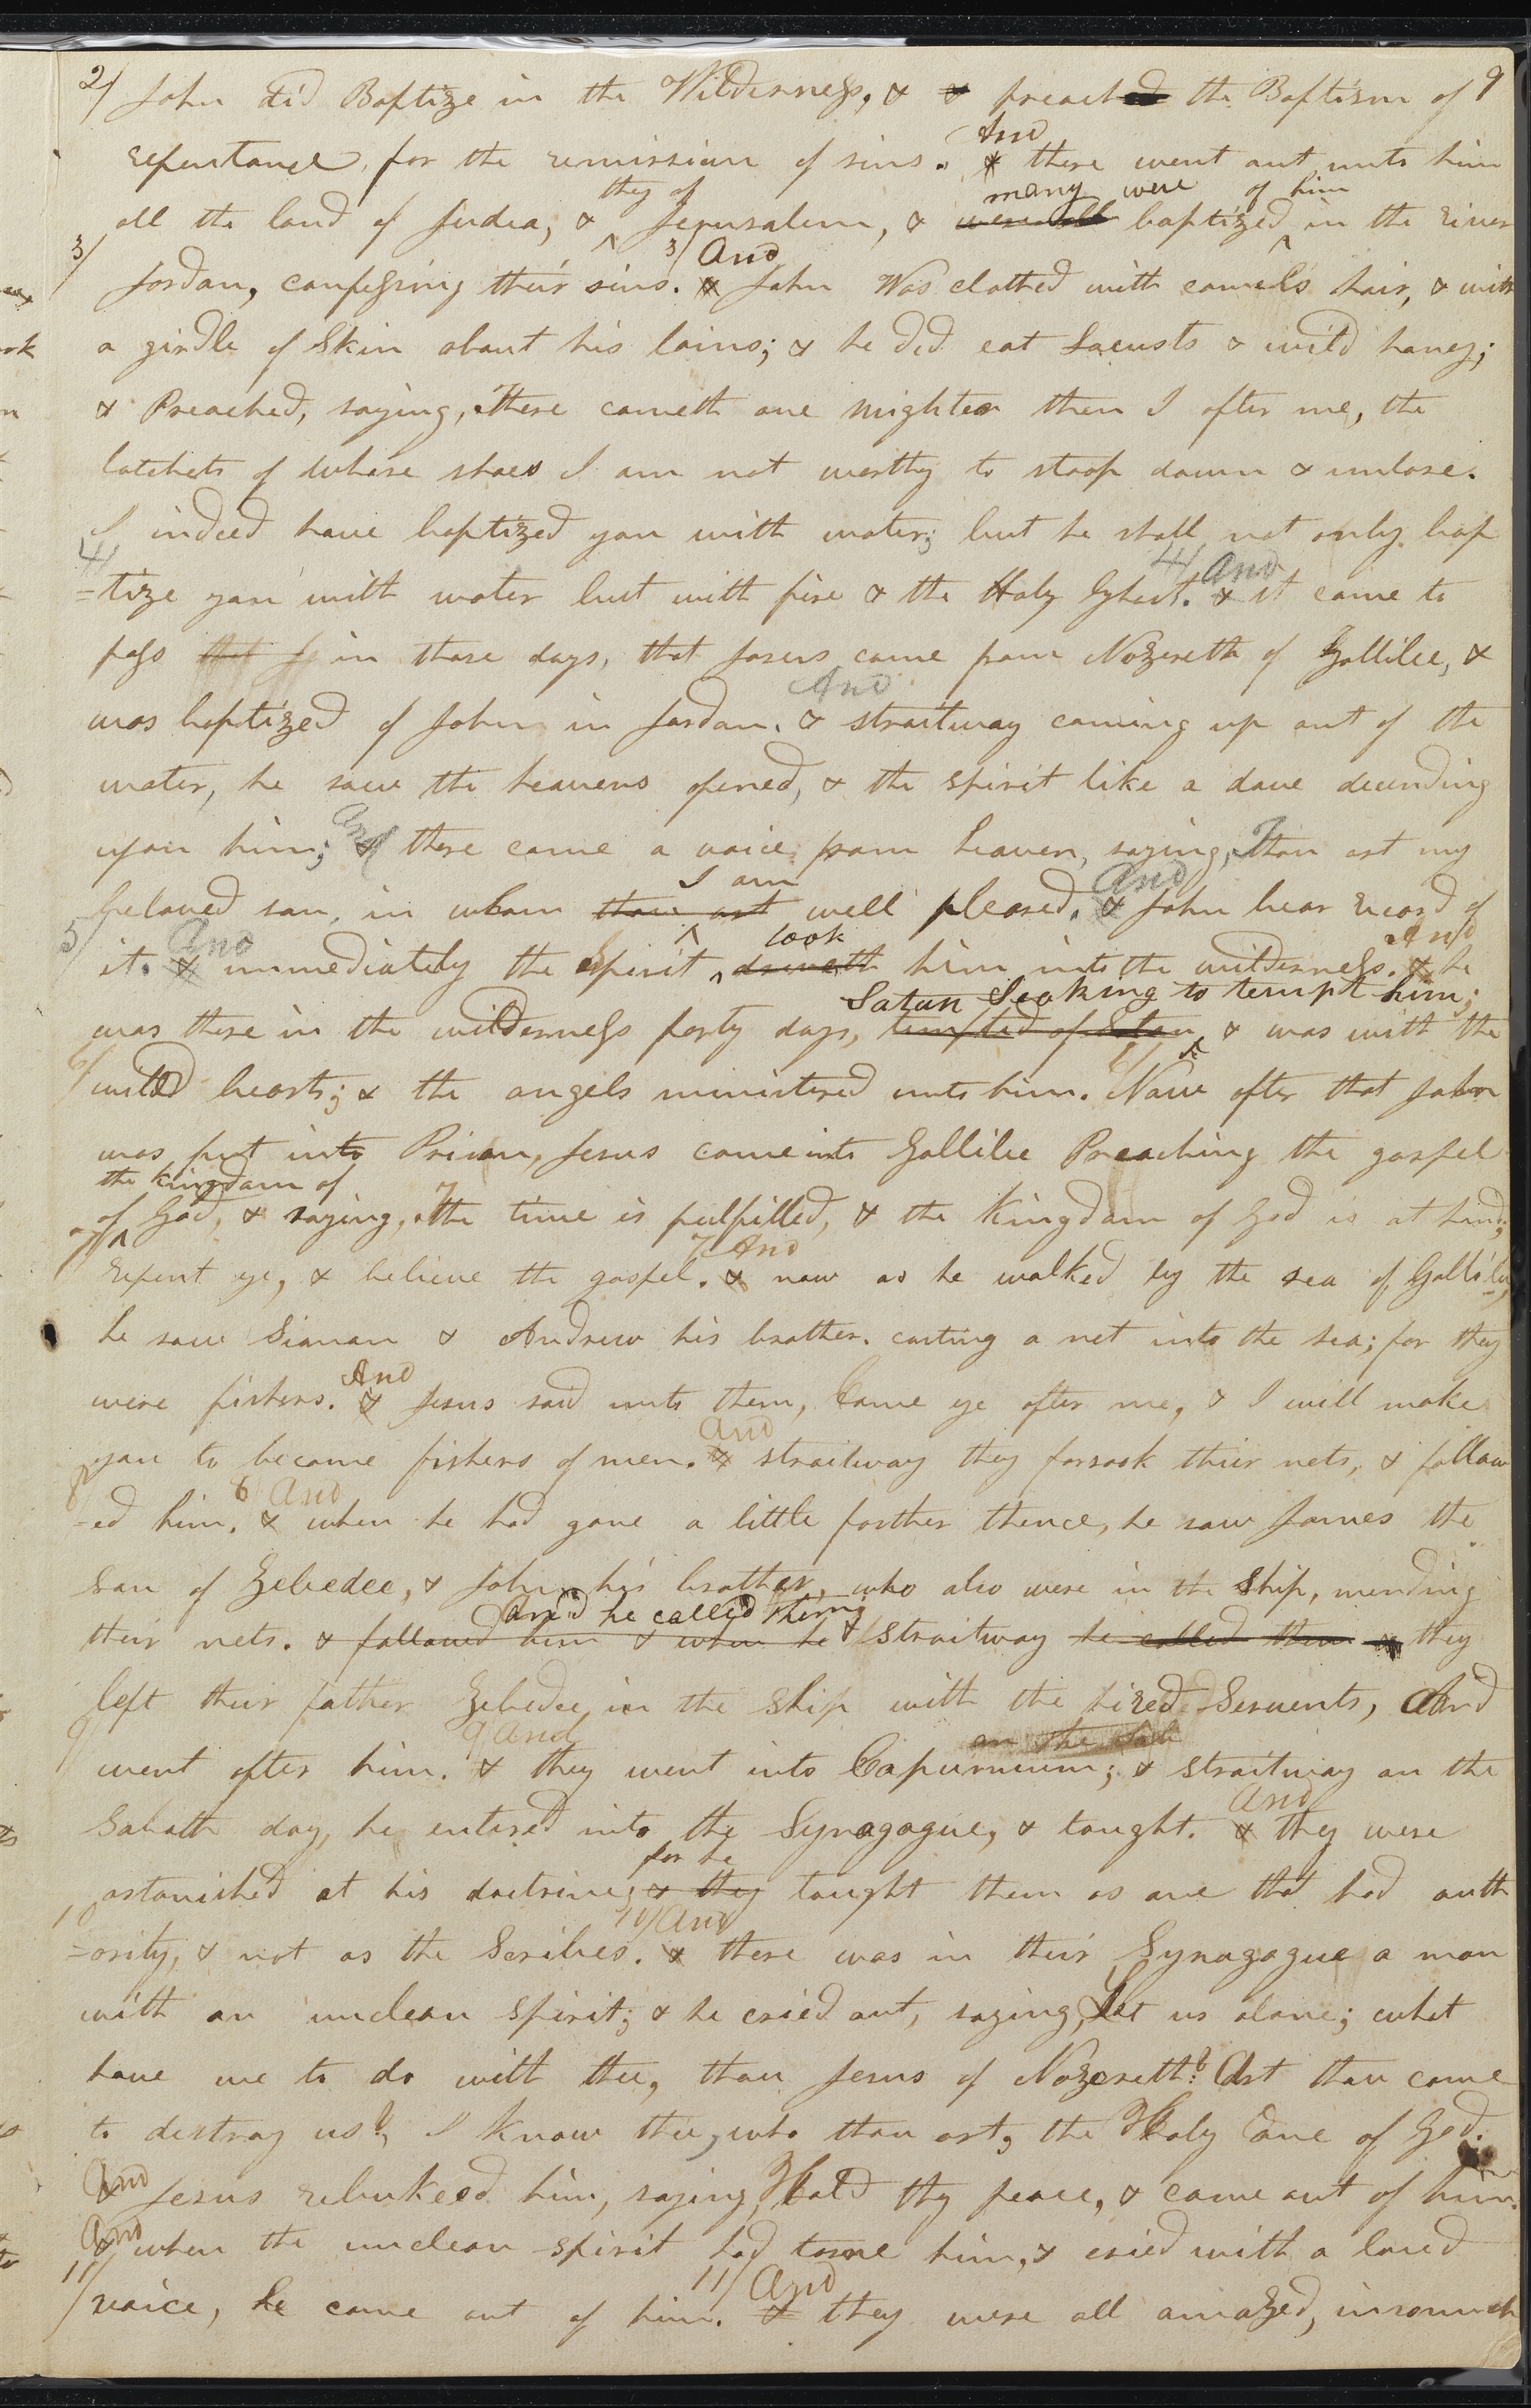 2/ John did Baptize in the Wilderness, & & preached the Baptism of 9
And
repentance, for the remission of sins. & there went out unto him
they of many were of him
all the land of Judea, & ^ Jerusalem, & were all baptized ^ in the river
3/ 3/ And
Jordan, confessing their sins. & John Was clothed with camel's hair, & with
a girdle of Skin about his loins; & he did eat Locusts & wild honey;
& Preached, saying, There cometh one mightier then I after me, the
latchets of whose shoes I am not worthy to stoop down & unlose.
I indeed have baptized you with water; but he shall not only bap
4/ 4/ And
=tize you with water but with fire & the Holy Ghost. & it came to
pass that J in those days, that Jesus came from Nazereth of Gallilee, &
And
was baptized of John in Jordan. & straitway coming up out of the
water, he saw the heavens opened, & the spirit like a dove decending
And
upon him; & there came a voice from heaven, saying, Thou art my
I am And
beloved son, in whom thou art ^ well pleased. & John bear record of
5/ And took And
it. & immediately the Spirit ^ driveth him into the wilderness. & he
Satan Seeking to tempt him;
was there in the wilderness forty days, tempted of Satan ^ & was with the
6/ 6/
wild beasts; & the angels ministered unto him. Now after that John
was put into Prison, Jesus came into Gallilee Preaching the gospel
the kingdom of
of ^ God, & saying, The time is fulfilled, & the kingdom of God is at hand;
7/ 7 And
repent ye, & believe the gospel. & now as he walked by the sea of Gallilee,
he saw Simon & Andrew his brother. casting a net into the sea; for they
And
were fishers. & Jesus said unto them, Come ye after me, & I will make
And
you to become fishers of men. & straitway they forsook their nets, & follow
8/ 8 And
=ed him. & when he had gone a little farther thence, he saw James the
son of Zebedee, & John his brother, who also were in the Ship, mending
And he called them;
their nets. & followed him & when he & straitway he called them & they
left their father Zebedee in the Ship with the hired Servents, And
9/ 9 And on the Sab
went after him. & they went into Capurnium; & straitway on the
And
Sabath day, he entered into the Synagogue, & tought. & they were
for he
astonished at his doctrine; & they tought them as one that had auth
10 10/ And
=ority, & not as the Scribes. & there was in their Synagogue a man
with an unclean spirit; & he cried out, saying, Let us alone; what
have we to do with thee, thou Jesus of Nazereth? Art thou come
to destroy us?, I know thee, who thou art, the Holy One of God.
And
& Jesus rebukeed him, saying, Hold thy peace, & come out of him.
And
& when the unclean spirit had torne him, & cried with a loud
11/ 11/ And
voice, he came out of him. & they were all amazed, insomuch